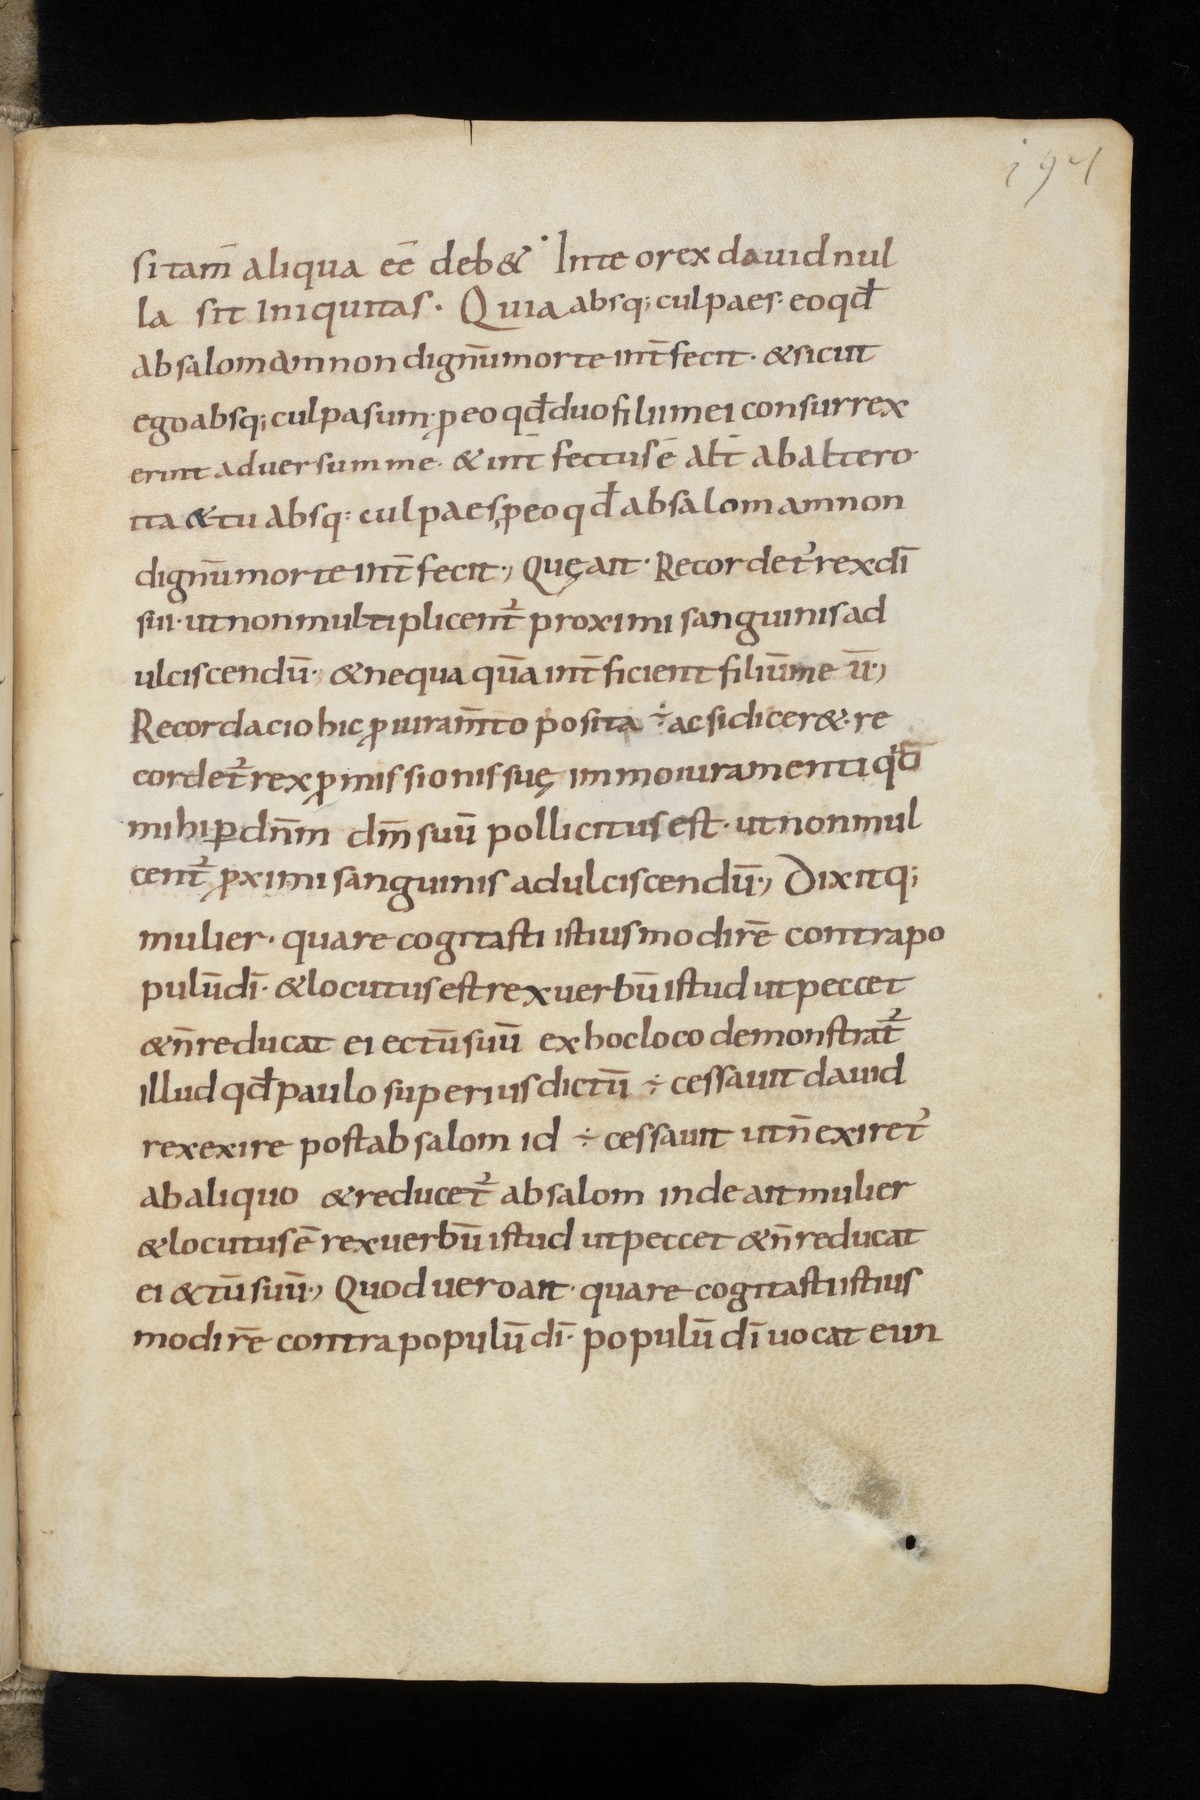 197
si tam̄ aliqua eē deb& · Inte o rex dauid nul
la sit Iniquitas · Quia absq; culpa es · eo qđ
absalom amnon dignū morte int̄fecit · & sicut
ego absq; culpa sum · ꝓ eo qđ duo filii mei consurrex
erint aduersum me · & int̄fectus ē alt̄ ab altero ·
ita & tu absq; culpa es, ꝓ eo qđ absalom amnon
dignū morte int̄fecit ·, Quę ait · Recordet᷑ rex dī
sui · ut non multiplicent᷑ proximi sanguinis ad
ulciscendū ·, & nequaquā int̄ficient filiū me ū ·,
Recordacio hic ꝓ iuram̄to posita ÷ ac si dicer& · re
cordet᷑ rex ꝓmissionis suę immo iuramenti qđ
mihi ꝑ dn̄m dm̄ suū pollicitus est · ut non mul
cent᷑ ꝓximi sanguinis ad ulciscendū ·, Dixitq;
mulier · quare cogitasti istius modi rē contra po
pulū dī · & locutus est rex uerbū istud ut peccet
& n̄ reducat eiectū suū ex hoc loco demonstrat᷑
illud qđ paulo superius dictū ÷ cessauit dauid
rex exire post absalom id ÷ cessauit ut n̄ exiret᷑
ab aliquo & reducet᷑ absalom inde ait mulier
& locutus ē rex uerbū istud ut peccet & n̄ reducat
ei&tū suū ·, Quod uero ait · quare cogitasti istius
modi rē contra populū dī · populū dī uocat eun